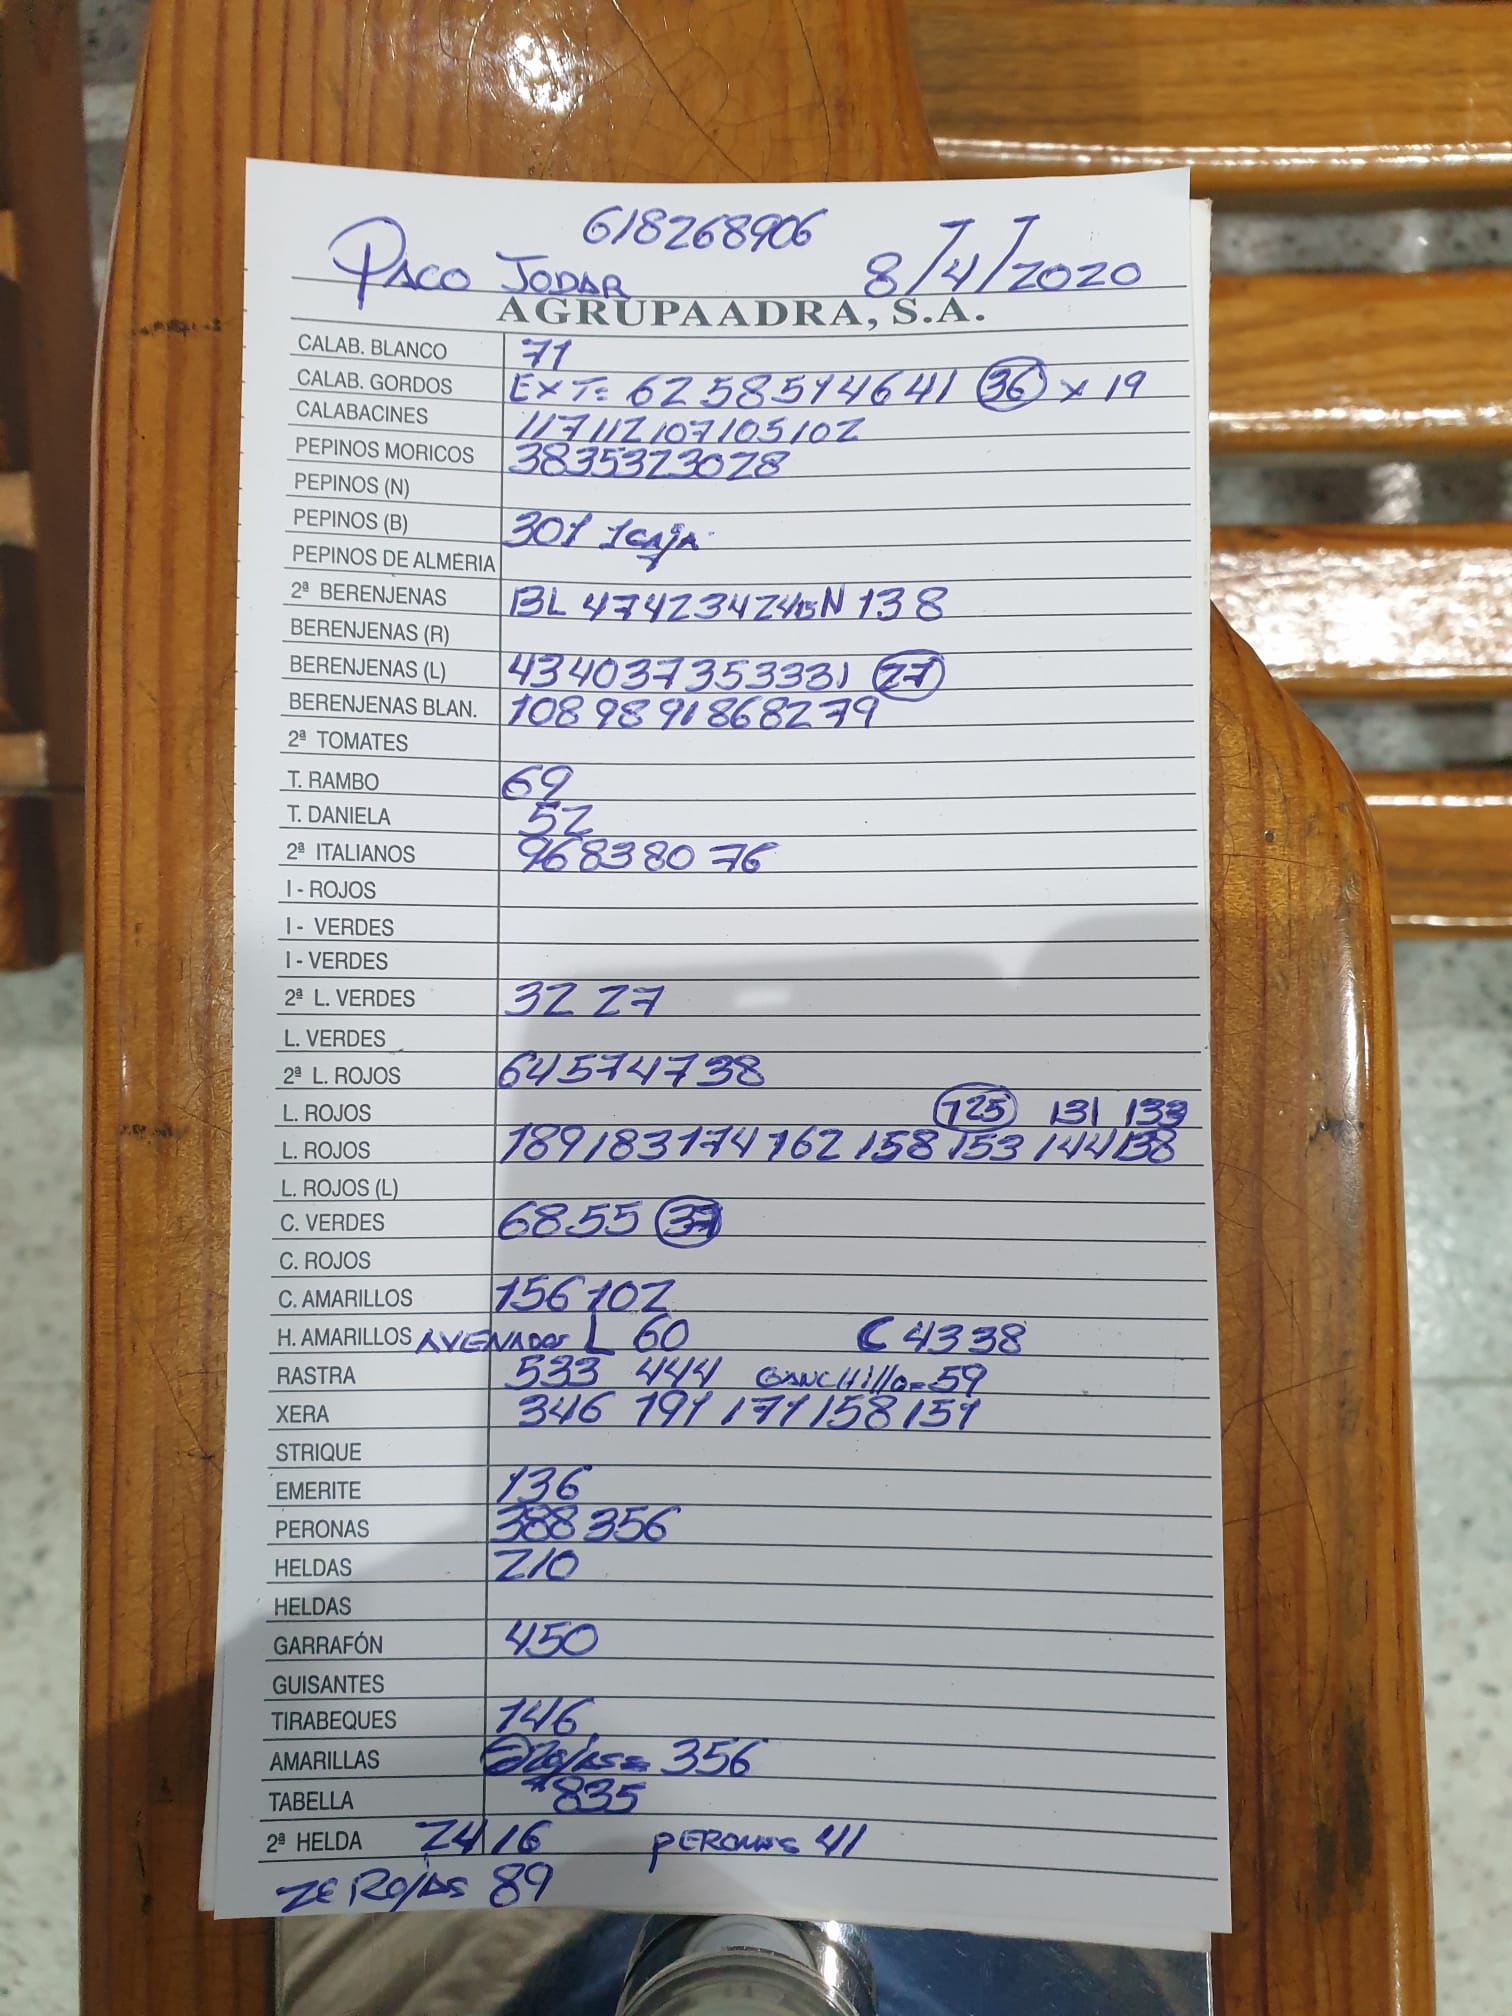 618268906
PACO JODAR 8/4/2020
AGRUPAADRA, S.A.
CALAB. BLANCO 71
CALAB. GORDOS EXT= 62 58 51 46 41 36 x 19
CALABACINES 117 112 107 105 102
PEPINOS MORICOS 38 35 32 30 28
PEPINOS (N)
PEPINOS (B) 301 1 CAJA
PEPINOS DE ALMERIA
2ª BERENJENAS BL 47 42 34 24 N 138
BERENJENAS (R)
BERENJENAS (L) 43 40 37 35 33 31 27
BERENJENAS BLAN. 108 98 91 86 82 79
2ª TOMATES
T. RAMBO 69
T. DANIELA 52
2ª ITALIANOS 96 83 80 76
I - ROJOS
I - VERDES
I - VERDES
2ª L. VERDES 32 27
L. VERDES
2ª L. ROJOS 64 57 47 38
L. ROJOS 125 131 133
L. ROJOS 189 183 174 162 158 153 144 138
L. ROJOS (L)
C. VERDES 68 55 37
C. ROJOS
C. AMARILLOS 156 102
H. AMARILLOS AVENADOS L 60 C 43 38
RASTRA 533 444 GANCHILLO= 59
XERA 346 191 171 158 151
STRIQUE
EMERITE 136
PERONAS 388 356
HELDAS 210
HELDAS
GARRAFÓN 450
GUISANTES
TIRABEQUES 146
AMARILLAS ROJAS= 356
TABELLA 835
2ª HELDA 24 16 PERONAS 41
2ª ROJAS 89